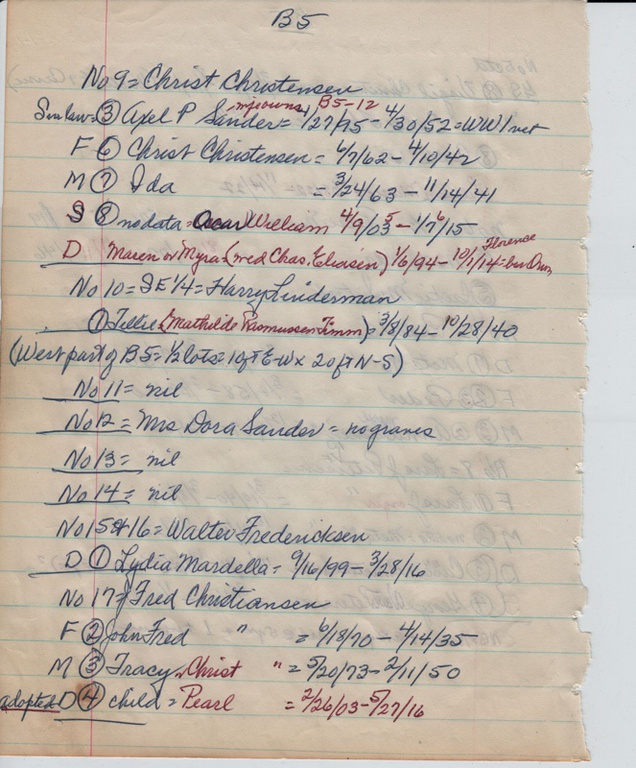 B5
No 9 = Christ Christensen
Son law = ③ Axel P Sander = 1/27/95 - 4/30/52 = WW1 vet
mjeowns B5-12
F ⑥ Christ Christensen = 6/7/62 - 4/10/42
M ⑦ Ida = 3/24/63 - 11/14/41
S ⑧ no data = Oscar William 4/9/03 5 - 1/7/15 6
D Maren or Myra (wed Chas. Eliasen) 1/6/94 - 10/1/14 = bur Dum
Florence
No 10 = SE 1/4 = Harry Linderman
① Tillie (Mathilde Rasmussen Timm) = 3/8/84 - 10/28/40
(West part of B5 = 1/2 lots = 10 ft E-W x 20 ft N-S)
No 11 = nil
No 12 = Mrs Dora Sander = no graves
No 13 = nil
No 14 = nil
No 15 & 16 = Walter Fredericksen
D ① Lydia Mardella = 9/16/99 - 3/28/16
No 17 = Fred Christiansen
F ② John Fred " = 6/18/70 - 4/14/35
M ③ Tracy, Christ " = 5/20/73 - 2/11/50
adopted D ④ child = Pearl = 2/26/03 - 5/27/16